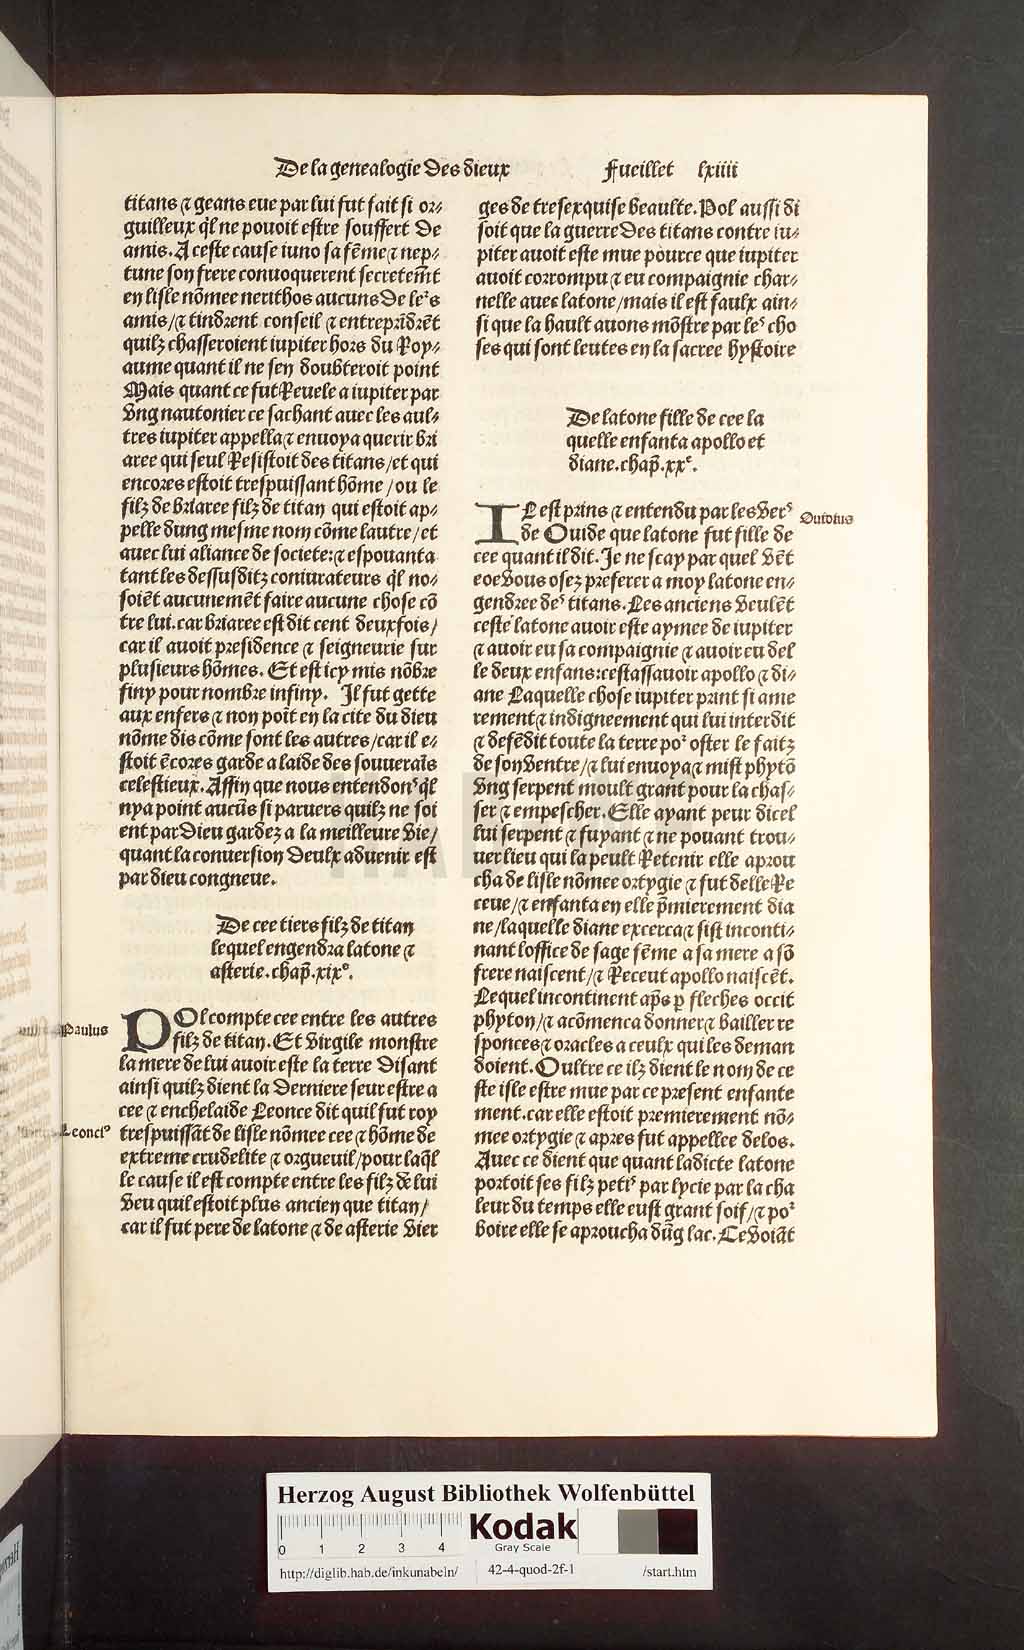 De la genealogie des dieux
Fueillet lxiiii
titans ⁊ geans eue par lui fut fait si or⸗
guilleux ql̃ ne pouoit estre souffert de
amis. A ceste cause iuno sa fẽme ⁊ nep⸗
tune son frere conuoquerent secretem̃t
en lisle nõmee nerithos aucuns de leᵉs
amis/ ⁊ tindrent conseil ⁊ entreprĩdrẽt
quilz chasseroient iupiter hors du Roy⸗
aume quant il ne sen doubteroit point
Mais quant ce fut Reuele a iupiter par
vng nautonier ce sachant auec les aul⸗
tres iupiter appella ⁊ enuoya querir bri
aree qui seul Resistoit des titans/ et qui
encores estoit trespuissant hõme/ ou le
filz de briaree filz de titan qui estoit ap⸗
pelle dung mesme nom cõme lautre/ et
auec lui aliance de societe: ⁊ espouanta
tant les dessusditz coniurateurs ql̃ no⸗
soiẽt aucunemẽt faire aucune chose cõ
tre lui. car briaree est dit cent deux fois/
car il auoit presidence ⁊ seigneurie sur
plusieurs hõmes. Et est icy mis nõbre
finy pour nombre infiny. Il fut gette
aux enfers ⁊ non poĩt en la cite du dieu
nõme dis cõme sont les autres/ car il e⸗
stoit ẽcores garde a laide des souueraĩs
celestieux. Affin que nous entendonˢ ql̃
nya point aucũs si paruers quilz ne soi
ent par Dieu gardez a la meilleure vie/
quant la conuersion deulx aduenir est
par dieu congneue.
De cee tiers filz de titan
lequel engendra latone ⁊
asterie. chap̃. xixᵉ.
Paulus
POl compte cee entre les autres
filz de titan. Et virgile monstre
la mere de lui auoir este la terre disant
ainsi quilz dient la derniere seur estre a
cee ⁊ enchelaide Leonce dit quil fut roy
Leonciꝰ
trespuissãt de lisle nõmee cee ⁊ hõme de
extreme crudelite ⁊ orgueuil/ pour laql̃
le cause il est compte entre les filz de lui
veu quil estoit plus ancien que titan/
car il fut pere de latone ⁊ de asterie vier
ges de tresexquise beaulte. Pol aussi di
soit que la guerre des titans contre iu⸗
piter auoit este mue pource que iupiter
auoit corrompu ⁊ eu compaignie char⸗
nelle auec latone/ mais il est faulx ain⸗
si que la hault auons mõstre par leˢ cho
ses qui sont leutes en la sacree hystoire
De latone fille de cee la
quelle enfanta apollo et
diane. chap̃. xxᵉ.
IL est prins ⁊ entendu par les verˢ
Ouidius
de Ouide que latone fut fille de
cee quant il dit. Je ne scay par quel vẽt
eoe vous osez preferer a moy latone en⸗
gendree deˢ titans. Les anciens veulẽt
ceste latone auoir este aymee de iupiter
⁊ auoir eu sa compaignie ⁊ auoir eu del
le deux enfans: cestassauoir apollo ⁊ di⸗
ane Laquelle chose iupiter print si ame
rement ⁊ indigneement qui lui interdit
⁊ defẽdit toute la terre poʳ oster le faitz
de son ventre/ ⁊ lui enuoya ⁊ mist phytõ
vng serpent moult grant pour la chas⸗
ser ⁊ empescher. Elle ayant peur dicel
lui serpent ⁊ fuyant ⁊ ne pouant trou⸗
uer lieu qui la peult Retenir elle aprou
cha de lisle nõmee ortygie ⁊ fut delle Re
ceue/ ⁊ enfanta en elle p̃mierement dia
ne/ laquelle diane excerca ⁊ fist inconti⸗
nant loffice de sage fẽme a sa mere a sõ
frere naiscent/ ⁊ Receut apollo naiscẽt.
Lequel incontinent ap̃s ꝑ fleches occit
phyton/ ⁊ acõmenca donner ⁊ bailler re
sponces ⁊ oracles a ceulx qui les deman
doient. Oultre ce ilz dient le nom de ce
ste isle estre mue par ce present enfante
ment. car elle estoit premierement nõ⸗
mee ortygie ⁊ apres fut appellee delos.
Auec ce dient que quant ladicte latone
portoit ses filz petiˢ par lycie par la cha
leur du temps elle eust grant soif/ ⁊ poʳ
boire elle se aproucha dũg lac. Ce voiãt
HAB
Herzog August Bibliothek Wolfenbüttel
0 1 2 3 4
Kodak
Gray Scale
http://diglib.hab.de/inkunabeln/
42-4-quod-2f-1
/start.htm